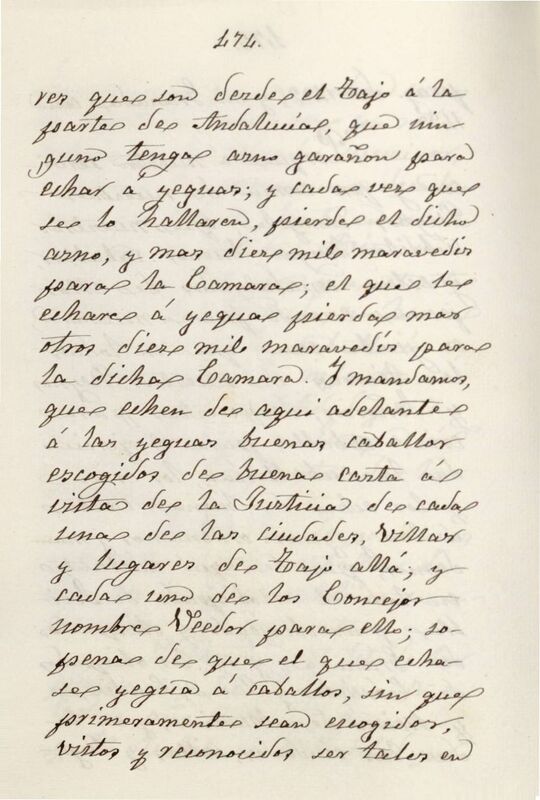 174.
res que son desde el Tajo á la
parte de Andalucía, que nin-
guno tenga asno garañon para
echar á yeguas; y cada vez que
se lo hallaren, pierde el dicho
asno, y mas diez mil maravedis
para la Camara; el que le
echare á yegua pierda mas
otros diez mil maravedis para
la dicha Camara. Y mandamos,
que echen de aqui adelante
á las yeguas buenas caballos
escogidos de buena casta á
vista de la Justicia de cada
una de las ciudades, Villas
y lugares de Tajo allá; y
cada uno de los Concejos
nombre Veedor para ello; so-
pena de que el que echa-
se yegua á caballos, sin que
primeramente sean escogidos,
vistos y reconocidos ser tales en